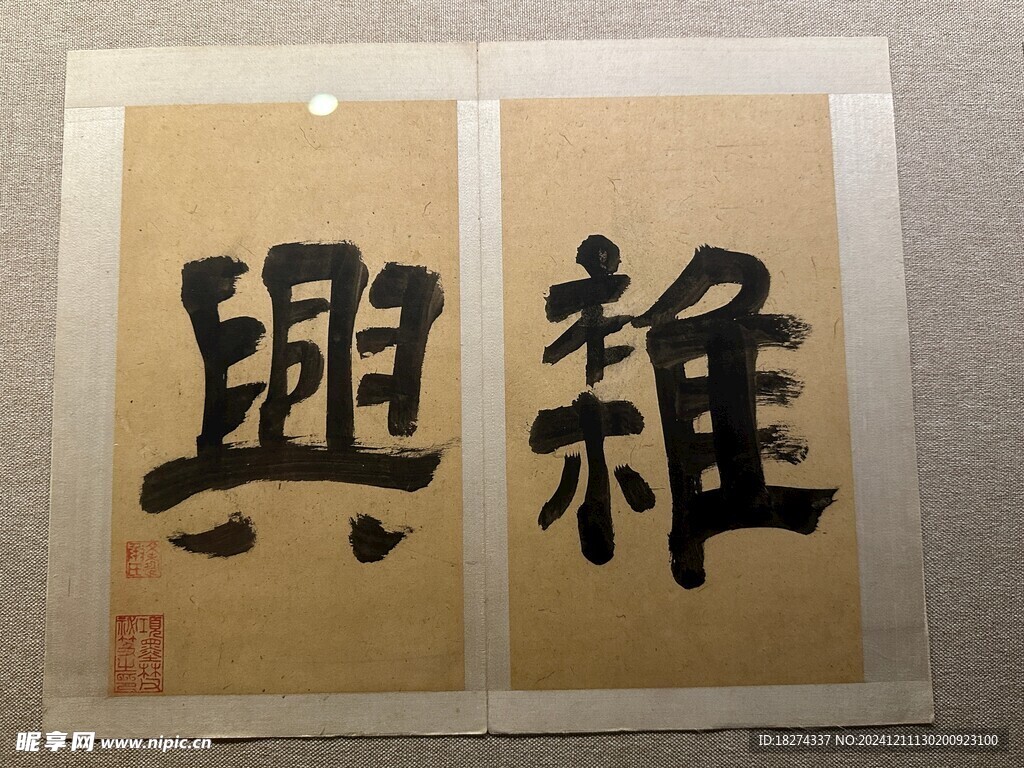 雜
興
項墨林
祕笈之印
昵享网 www.nipic.cn
ID:18274337 NO:20241211130200923100